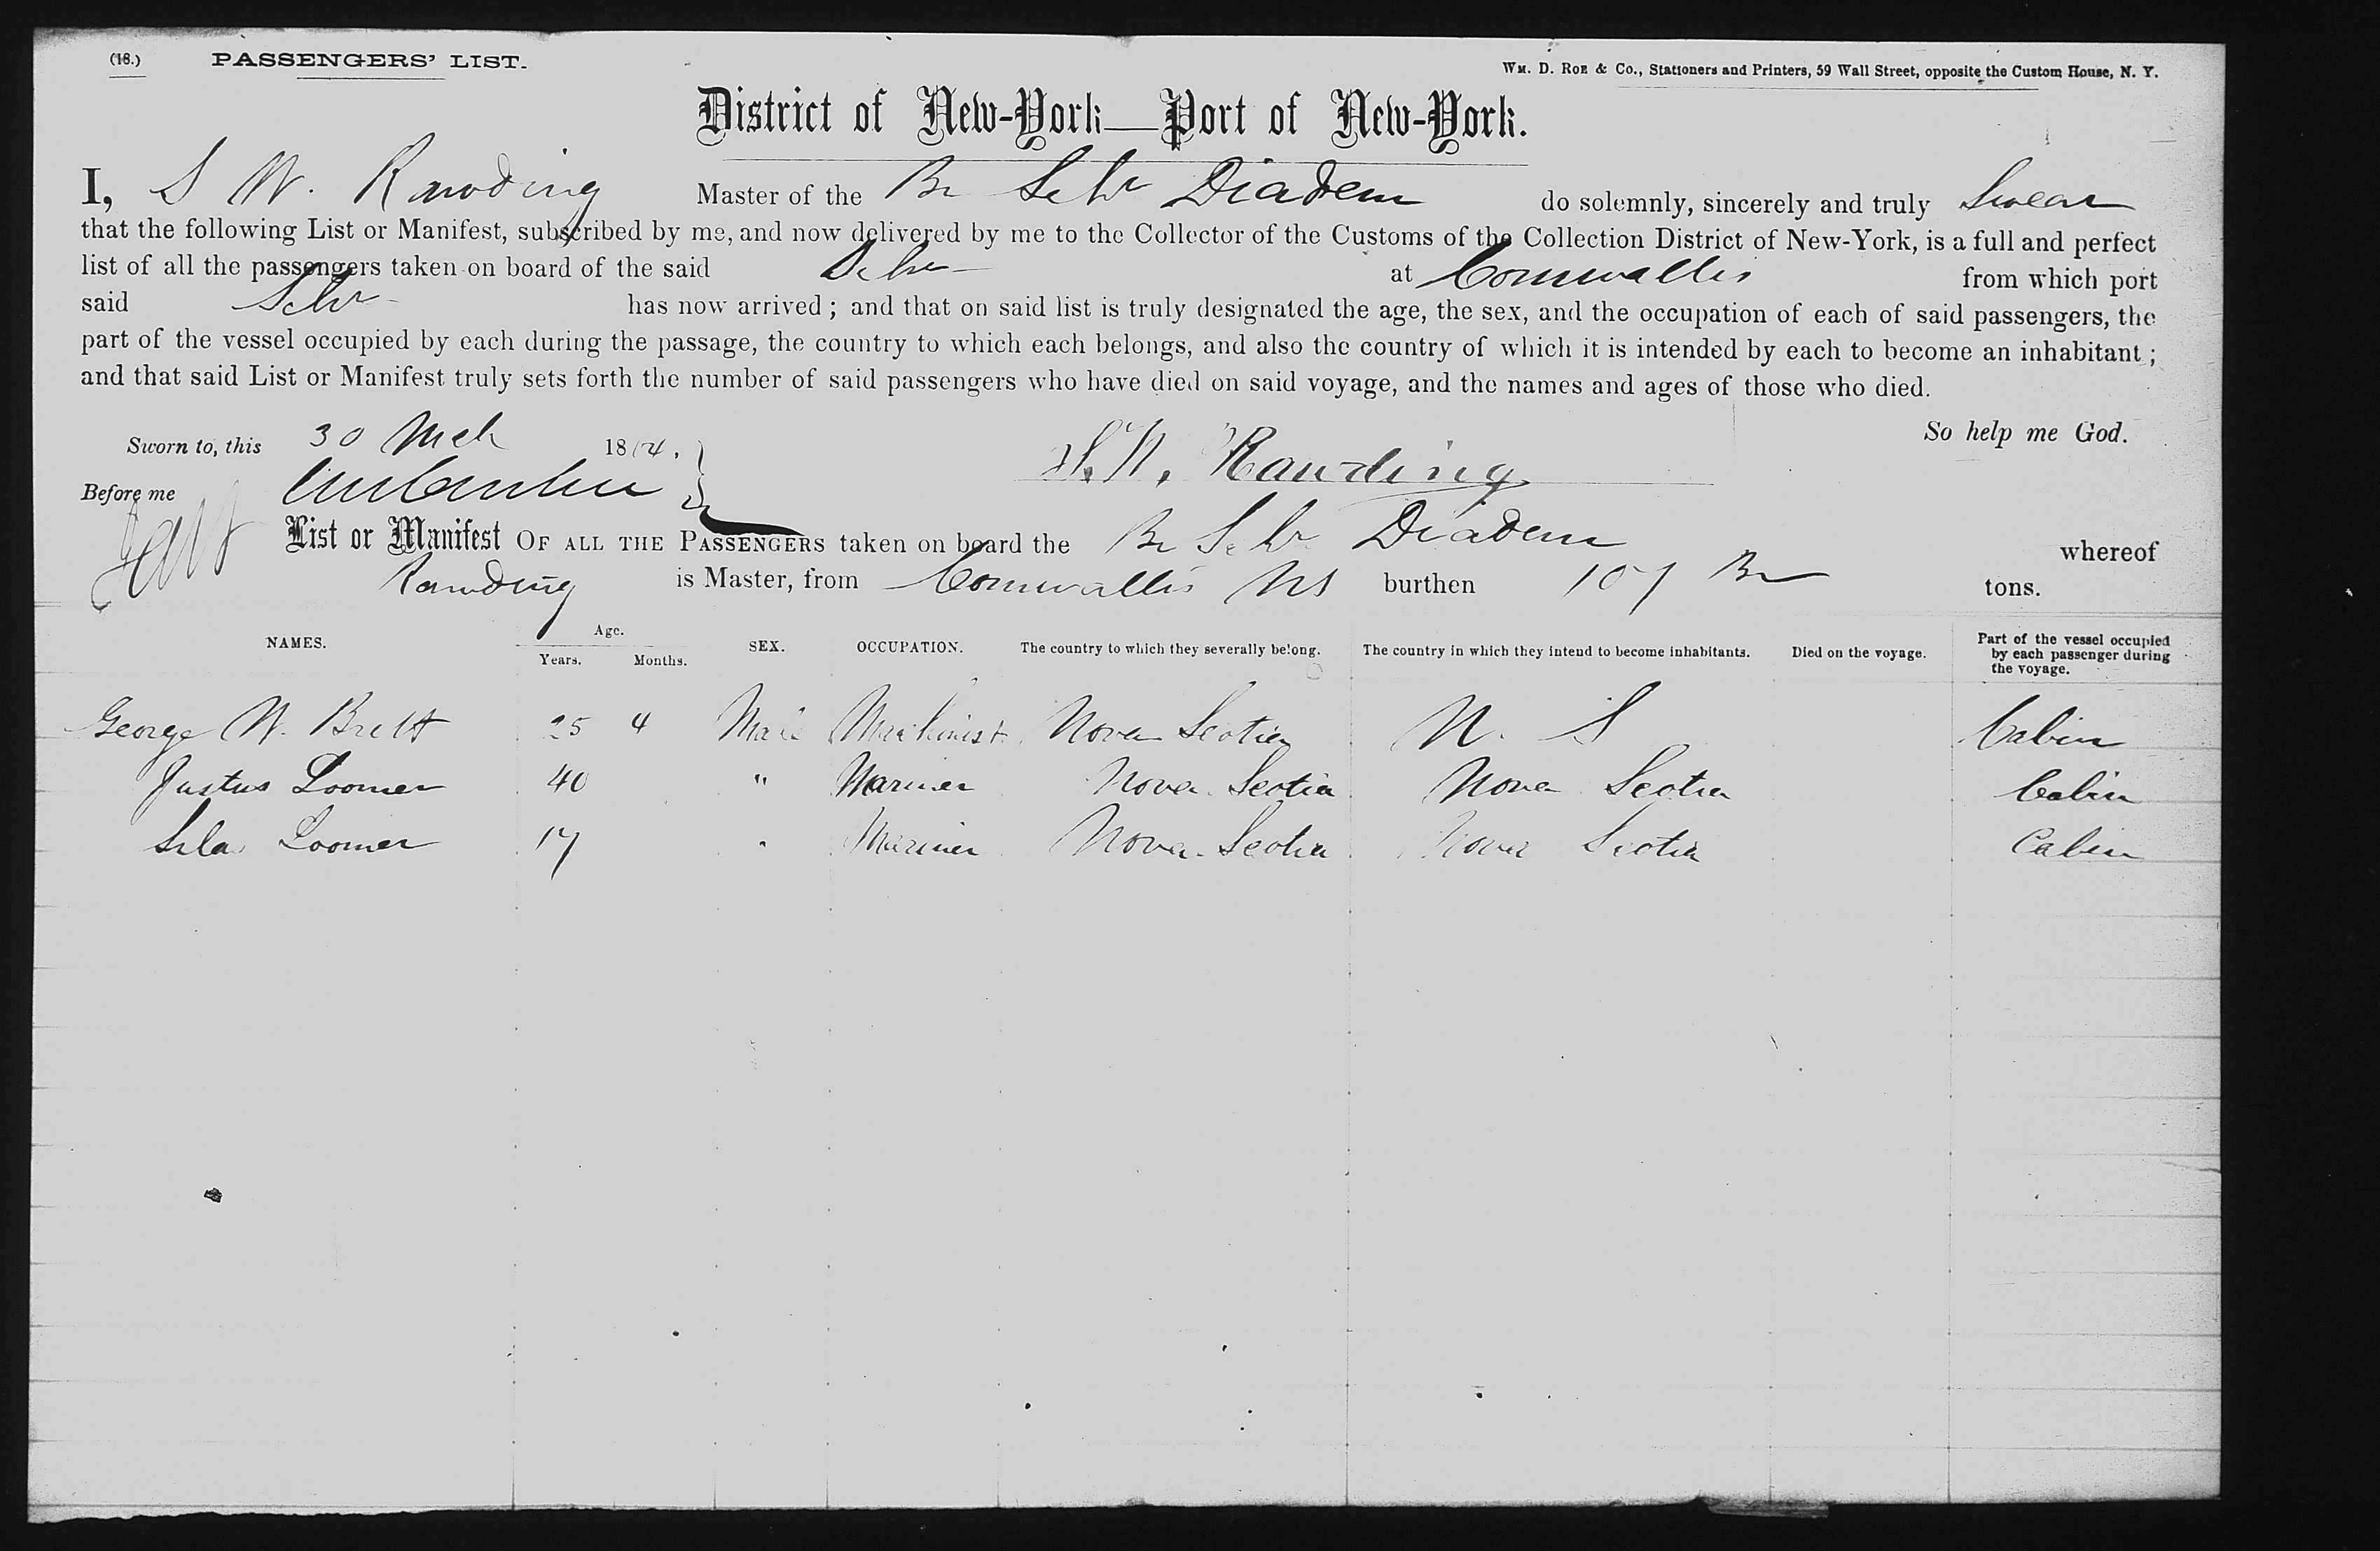 (18.) PASSENGERS' LIST. Wm. D. Roe & Co., Stationers and Printers, 59 Wall Street, opposite the Custom House, N. Y.
District of New-York—Port of New-York.
I, S W. Rawding Master of the Br Schr Diadem do solemnly, sincerely and truly Swear
that the following List or Manifest, subscribed by me, and now delivered by me to the Collector of the Customs of the Collection District of New-York, is a full and perfect
list of all the passengers taken on board of the said Schr at Cornwallis from which port
said Schr has now arrived; and that on said list is truly designated the age, the sex, and the occupation of each of said passengers, the
part of the vessel occupied by each during the passage, the country to which each belongs, and also the country of which it is intended by each to become an inhabitant;
and that said List or Manifest truly sets forth the number of said passengers who have died on said voyage, and the names and ages of those who died.
So help me God.
Sworn to, this 30 Mch 1874.
S. W. Rawding
Before me
List or Manifest OF ALL THE PASSENGERS taken on board the Br Schr Diadem whereof
Rawding is Master, from Cornwallis NS burthen 107 Br tons.
NAMES. Age. Years. Months. SEX. OCCUPATION. The country to which they severally belong. The country in which they intend to become inhabitants. Died on the voyage. Part of the vessel occupied by each passenger during the voyage.
George W. Brett 25 4 Male Machinist Nova Scotia N. S Cabin
Justus Loomer 40 " Mariner Nova Scotia Nova Scotia Cabin
Sila Loomer 17 " Mariner Nova Scotia Nova Scotia Cabin